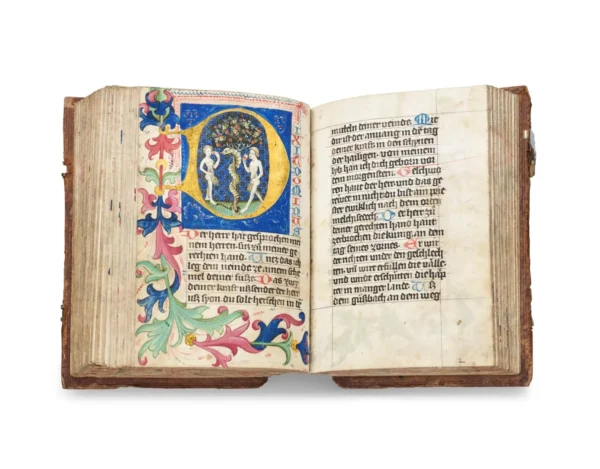 D
IXIT DOMINUS
Der herr hat gesprochen mit
mein herren siz zu meiner ge
rechten hand Untz das ich
leg dein veinde ze ainem sche
mel deiner füsse Das
deiner kraft aussender der herr
uz syon du solt herschen in der
mitteln deiner veinde Mit
dir ist der anvang in de tag
deiner kraft in den schynen
der hailigen von meinem
hab han ich dich geborn vor
dem morgenstern Geschwo
ren hat der herr und das ge
rewet in nicht du bist am prie
ster ewiklich nach dem orten
melchisedech Der herr zu
deiner gerechten hand hat
zerbrochen die kunig an dem
tag seines zornes Er wirt
under den geschlech
ten wirt erfüllen die välle
wird erschüttern die häp
ter in maniger lande
dem güßbach an dem weg